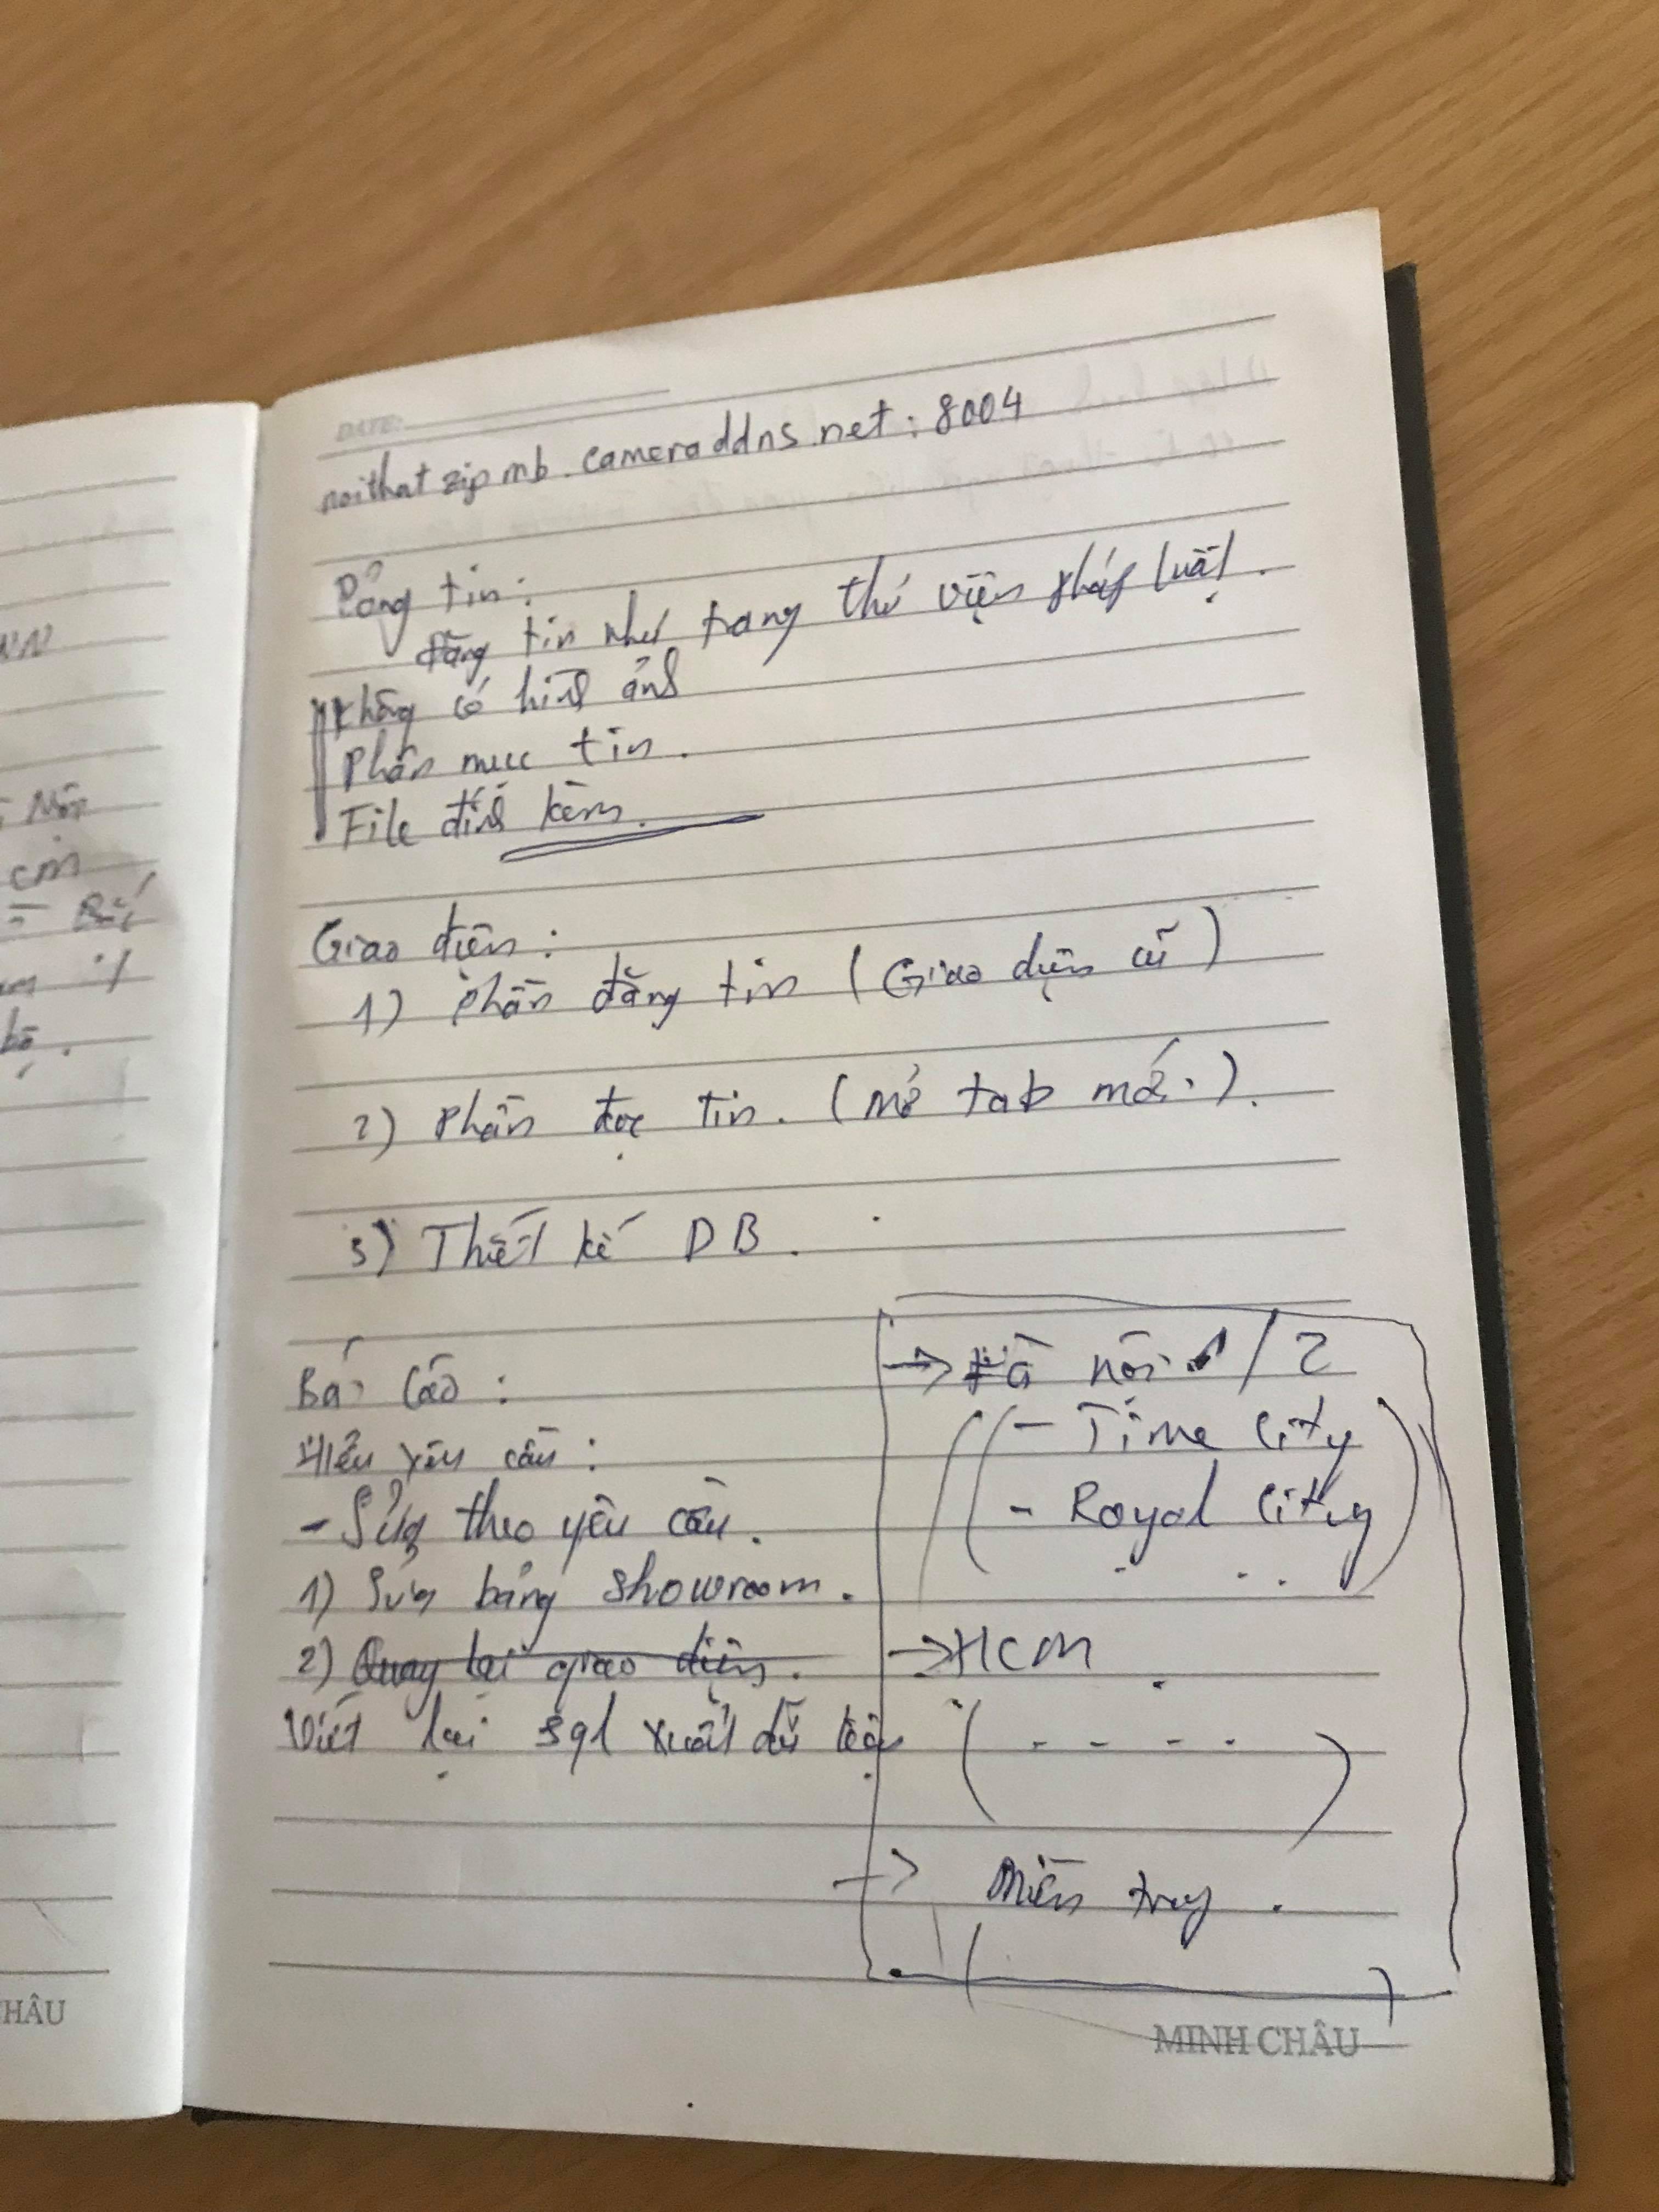 DATE:
noithatzipmb.cameraddns.net:8004
Bảng tin:
đăng tin như trang thư viện pháp luật.
Không có hình ảnh
Phân mục tin.
File đính kèm.
Giao diện:
1) Phần đăng tin (Giao diện cũ)
2) Phần đọc tin. (Mở tab mới).
3) Thiết kế DB.
Báo cáo:
Hiểu yêu cầu:
- Sửa theo yêu cầu.
1) Sửa bảng showroom.
2) Quay lại giao diện.
Viết lại sql xuất dữ liệu
→ Hà nội / 2
- Time City
- Royal City
→ HCM
→ Miền trung.
MINH CHÂU
HÂU